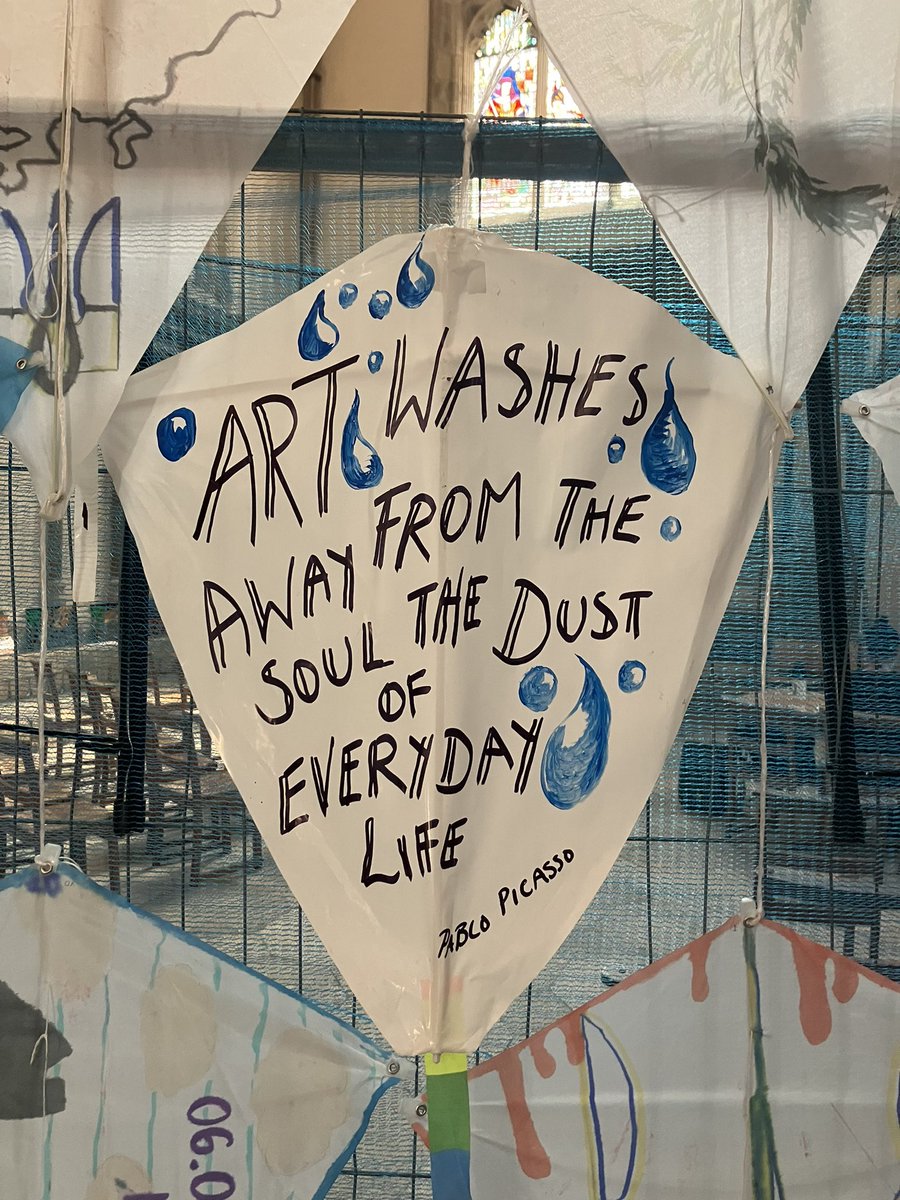 ART WASHES
AWAY FROM THE
SOUL THE DUST
OF
EVERYDAY
LIFE
PABLO PICASSO
06.0